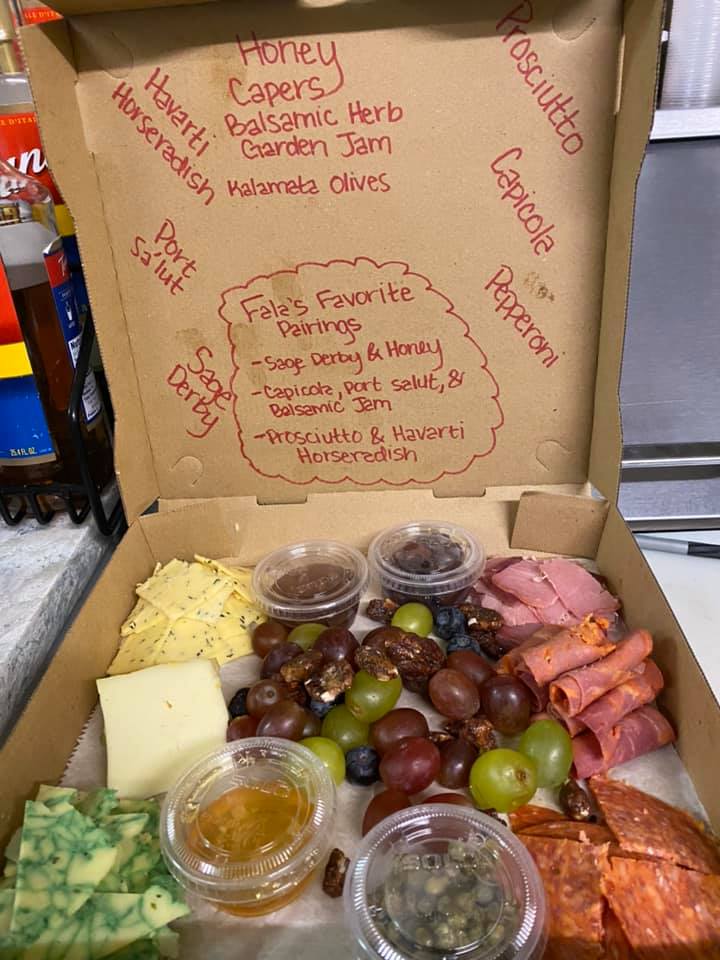 Honey
Capers
Balsamic Herb
Garden Jam
Kalamata Olives
Havarti
Horseradish
Port
Sa'lut
Sage
Derby
Prosciutto
Capicola
Pepperoni
Fala's Favorite
Pairings
- Sage Derby & Honey
- Capicola, Port Salut, &
Balsamic Jam
- Prosciutto & Havarti
Horseradish
25.4 FL OZ.
SOLO